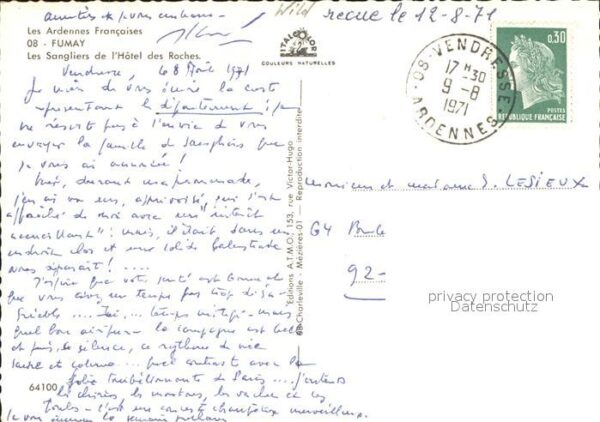 recue le 12-8-71
Wild
Les Ardennes Françaises
08 - FUMAY
Les Sangliers de l'Hôtel des Roches.
ITALCOLOR
COULEURS NATURELLES
08 - VENDRESSE
17 H -30
9 - 8
1971
ARDENNES
0,30
POSTES
REPUBLIQUE FRANÇAISE
Vendresse, 8 Août 1971
Je viens de vous écrire la carte
représentant le département; je
ne résiste pas à l'envie de vous
envoyer la famille de sangliers que
je vous ai annoncée!
Hier, durant ma promenade,
j'en ai vu un, apprivoisé, qui s'est
approché de moi avec un "intérêt
accueillant": mais, il était dans un
endroit clos et une solide balustrade
nous séparait! ....
J'espère que votre santé est bonne et
que vous avez un temps pas trop désa-
gréable .... Ici, ... temps mitigé - mais
quel bon air pur - la campagne est belle
et puis, le silence, ce rythme de vie
et calme ... quel contraste avec la
folie tourbillonnante de Paris ....
les chiens, les moutons, les vaches et les
poules - c'est un concert champêtre merveilleux
Editions A.T.M.O. 153, rue Victor-Hugo
08 Charleville - Mézières-01 - Reproduction interdite
Monsieur et madame S. LESIEUX
64
92-
privacy protection
Datenschutz
64100